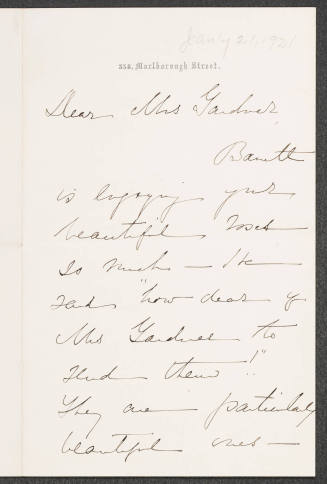 Jan'y 21, 1921
358, Marlborough Street.
Dear Mrs Gardner,
Barrett
is enjoying your
beautiful roses
so much — He
said "how dear of
Mrs Gardner to
send them"!!
They are particularly
beautiful ones —